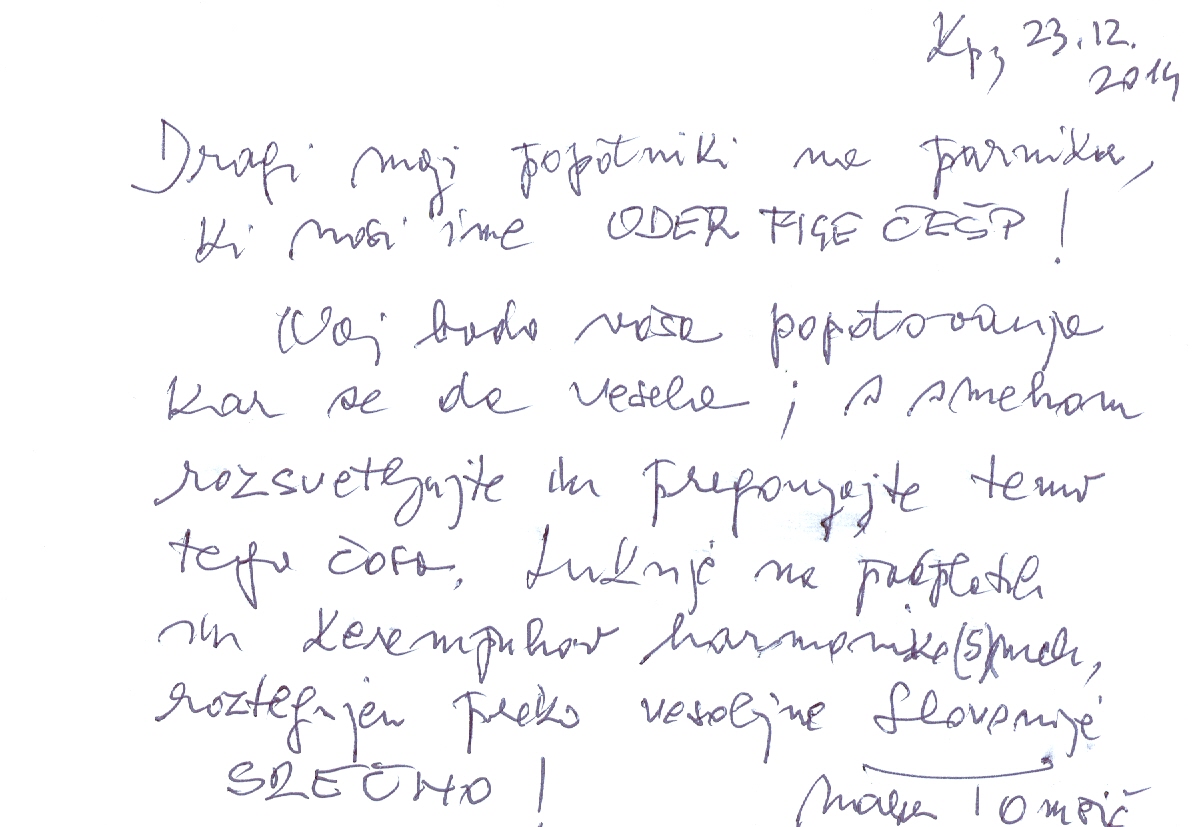 Kp, 23.12.
2014
Dragi moji popotniki na parniku,
ki nosi ime ODER FIGE ČEŠP!
Naj bodo vaša popotovanja
kar se da vesela; s smehom
razsvetljujte in preganjajte temo
tega časa. Luknje na podplatih
in Kerempuhov harmonika(s)meh,
raztegnjen preko vesoljne Slovenije
SREČNO!
Tomšič